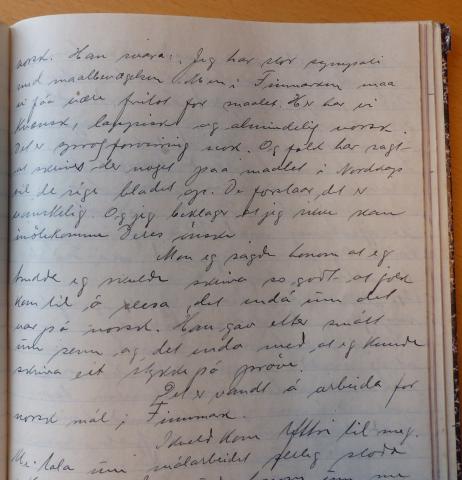 norsk. Han svara: Jeg har stor sympati
med maalbevægelsen. Men i Finmarken maa
vi faa være fritat for maalet. Her har vi
kvensk, lappisk og almindelig norsk.
Det er sprogforvirring nok. Og folk har sagt
at skrives der noget paa maalet i Nordkap
vil de sige bladet op. De forstaar, det er
vanskelig. Og jeg beklager at jeg ikke kan
imötekomme Deres önske.
Men eg sagde honom at eg
trudde eg skulde skriva so godt at folk
kom til å lesa det endå um det
var på norsk. Han gav etter smått
um senn og det enda med at eg kunde
skriva eit stykke på pröve.
Det er vandt å arbeida for
norsk mål i Finmark.
Ikveld kom til meg.
Me tala um målarbeidet